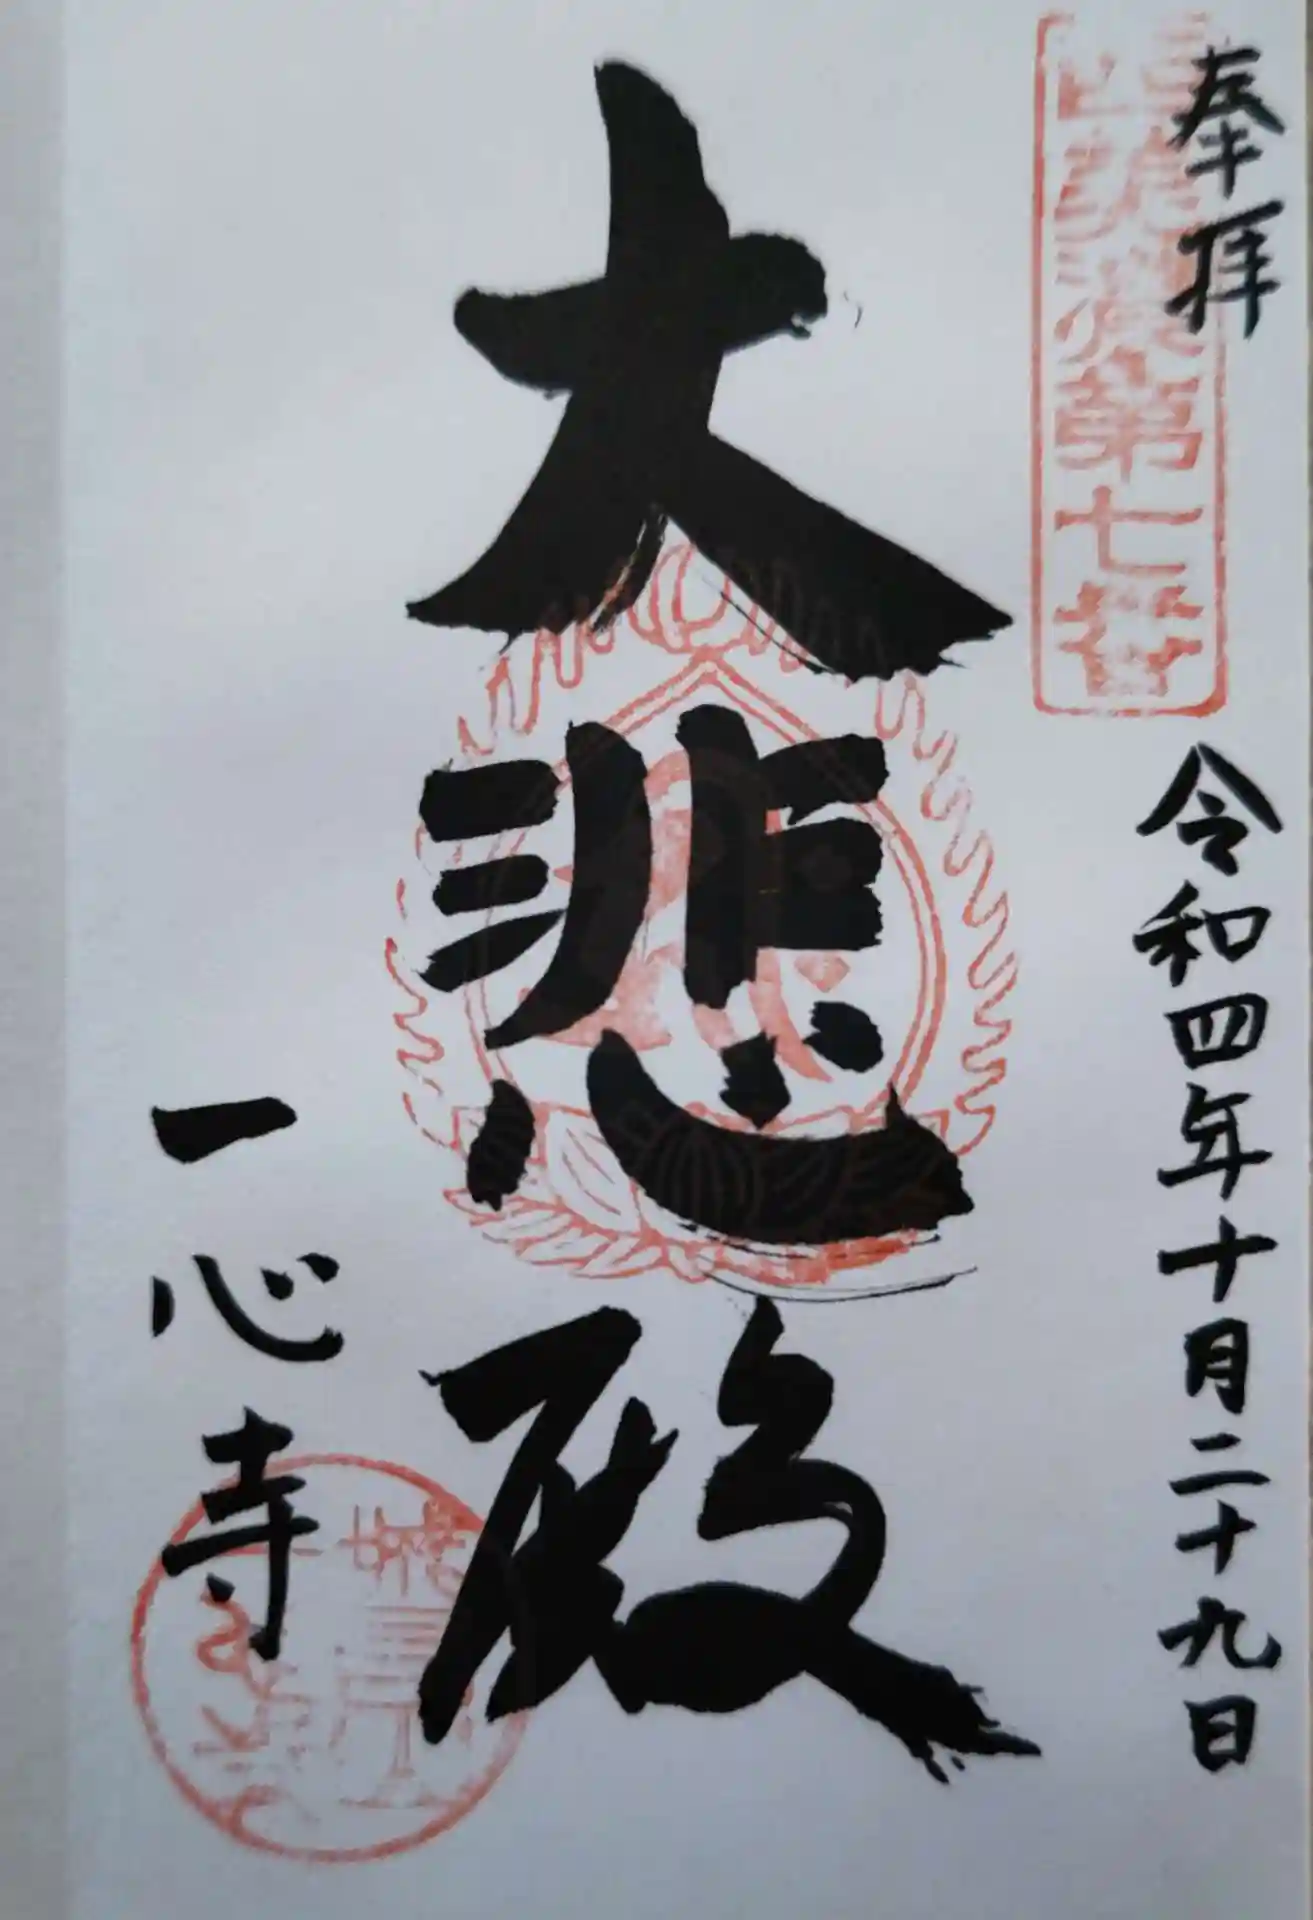 奉拝
令和四年十月二十九日
第七番
大悲殿
一心寺